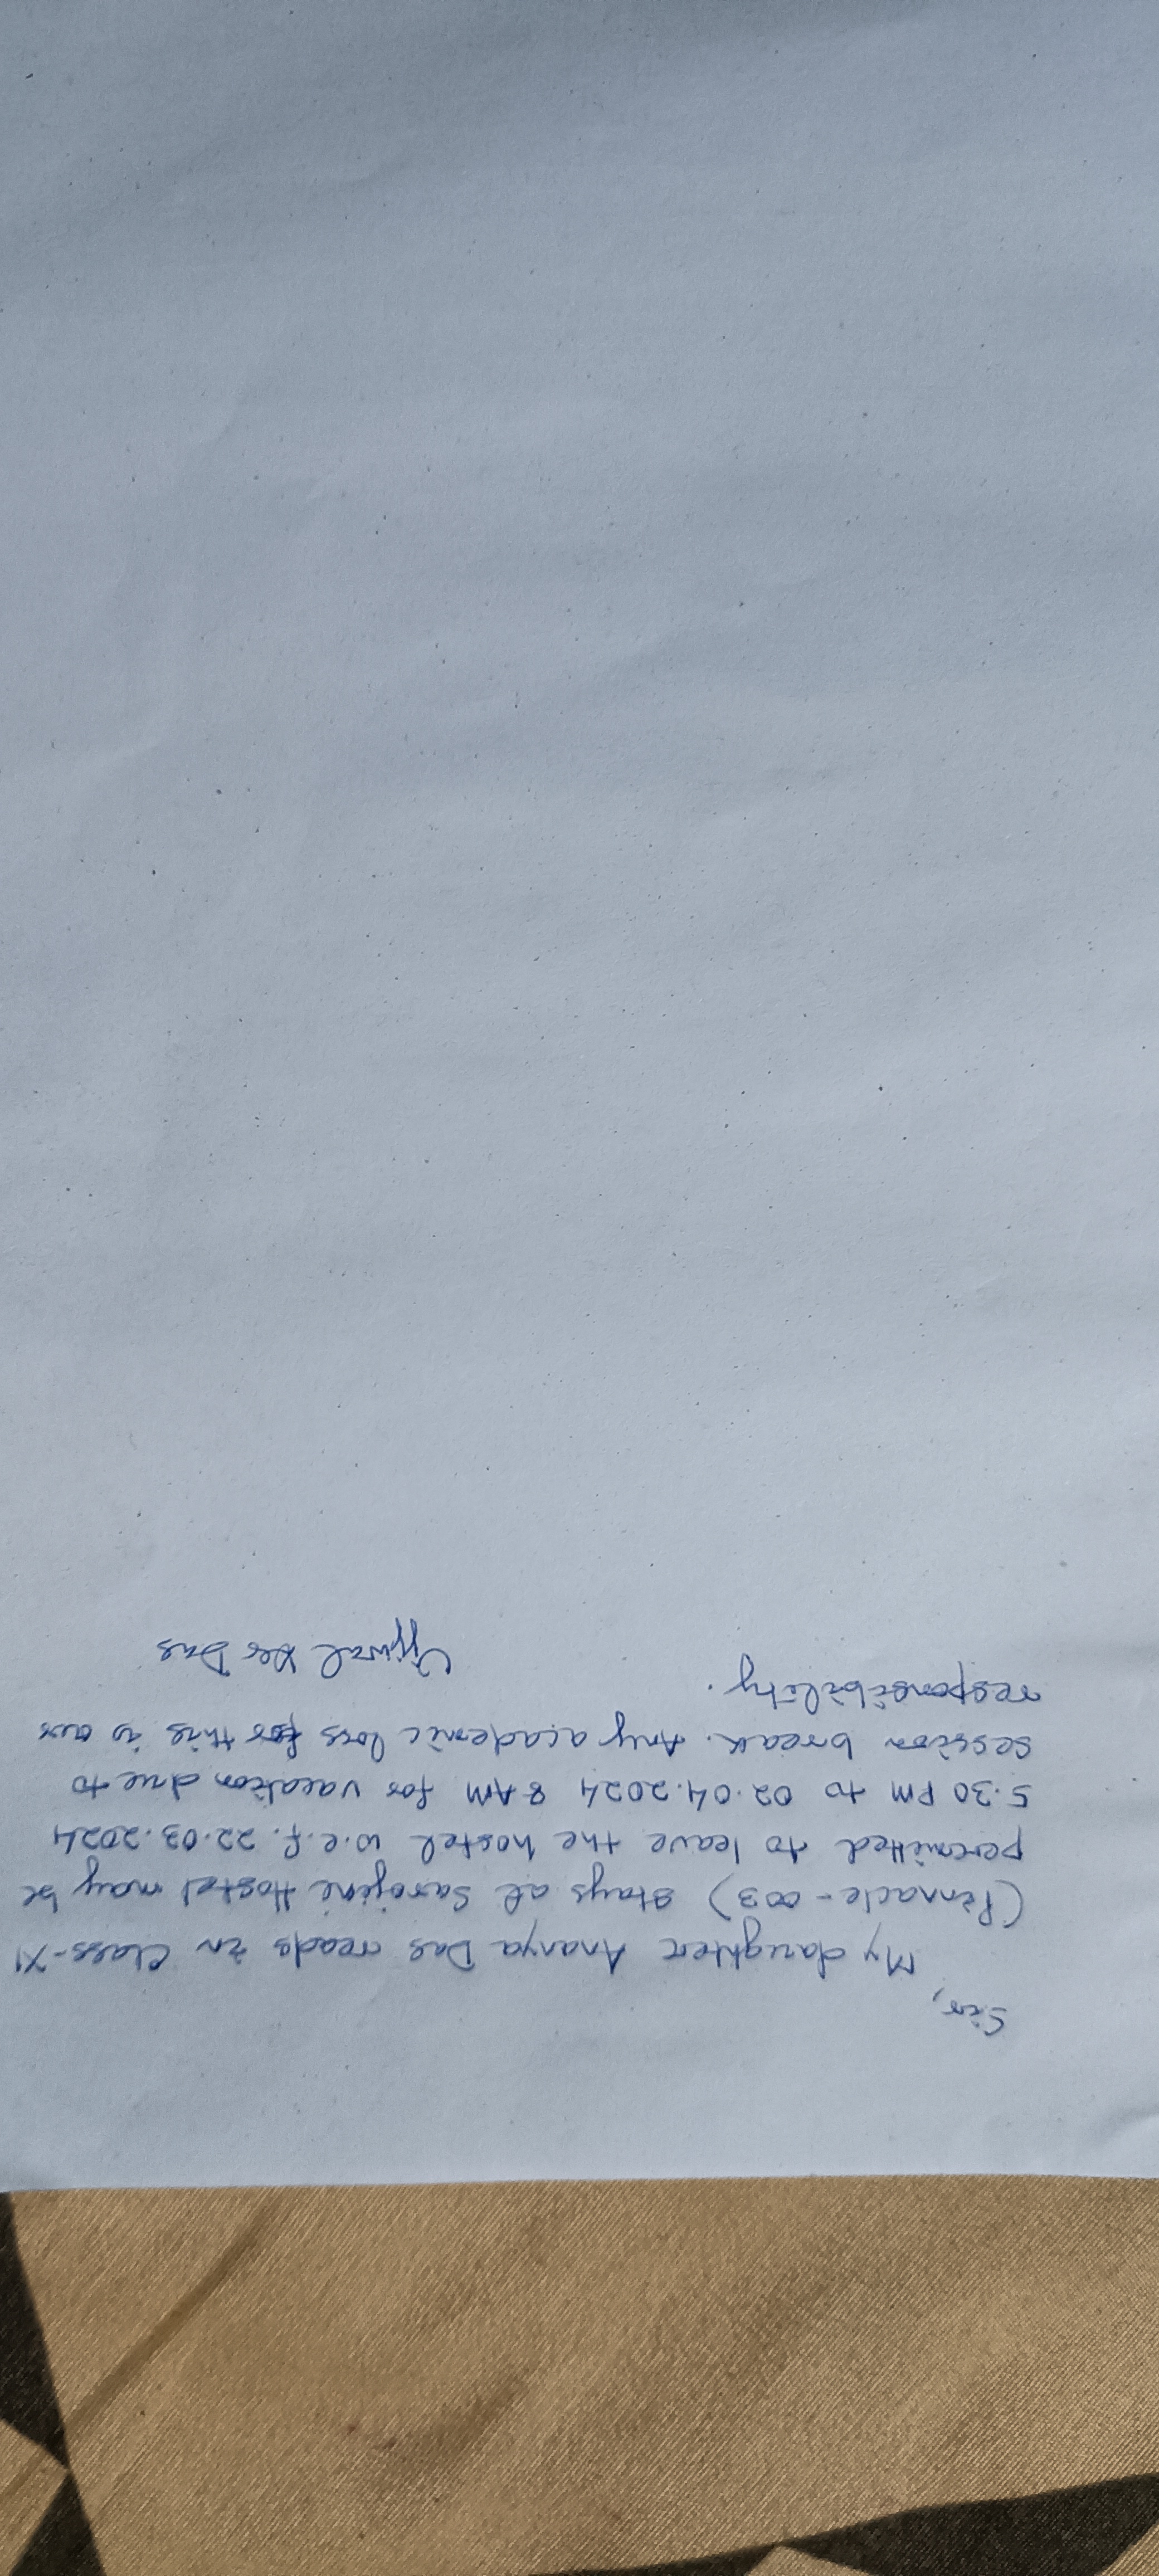 Sir,
My daughter Ananya Das reads in Class-XI
(Pinnacle-003) stays at Sarojini Hostel may be
permitted to leave the hostel w.e.f. 22.03.2024
5.30 PM to 02.04.2024 8 AM for vacation due to
session break. Any academic loss for this is our
responsibility.
Ujjwal Das